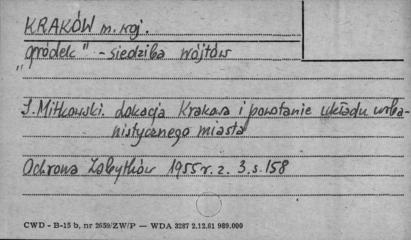 KRAKÓW m. woj.
„gródek" - siedziba wójtów
J. Mitkowski. Lokacja Krakowa i powstanie układu urba-
nistycznego miasta
Ochrona Zabytków 1955 r. z. 3. s. 158
CWD - B-15 b, nr 2659/ZW/P — WDA 3287 2.12.61 989.000